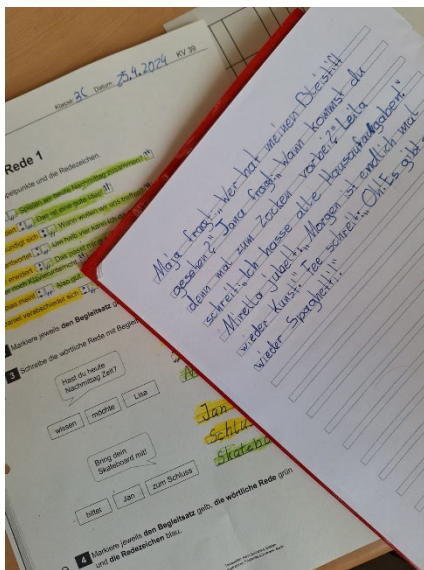 Klasse 3c Datum 25.4.2024 KV 39
Rede 1
pelpunkte und die Redezeichen.
Spielen wir heute Nachmittag zusammen?
Das ist eine gute Idee!
Wann wollen wir uns treffen?
verabschiedet sich
Markiere jeweils den Begleitsatz
3 Schreibe die wörtliche Rede mit
Hast du heute
Nachmittag Zeit?
wissen möchte Lisa
Bring dein
Skateboard mit!
bittet Jan zum Schluss
Jan
Schlu
Skatebo
4 Markiere jeweils den Begleitsatz gelb, die wörtliche Rede grün
und die Redezeichen blau.
Maja fragt: „Wer hat meinen Bleistift
gesehen?" Jana fragt: „Wann kommst du
denn mal zum Zocken vorbei?" Leila
schreit: „Ich hasse alle Hausaufgaben!"
Mirella jubelt: „Morgen ist endlich mal
wieder Kunst!" Fee schreit: „Oh! Es gibt
wieder Spaghetti!"